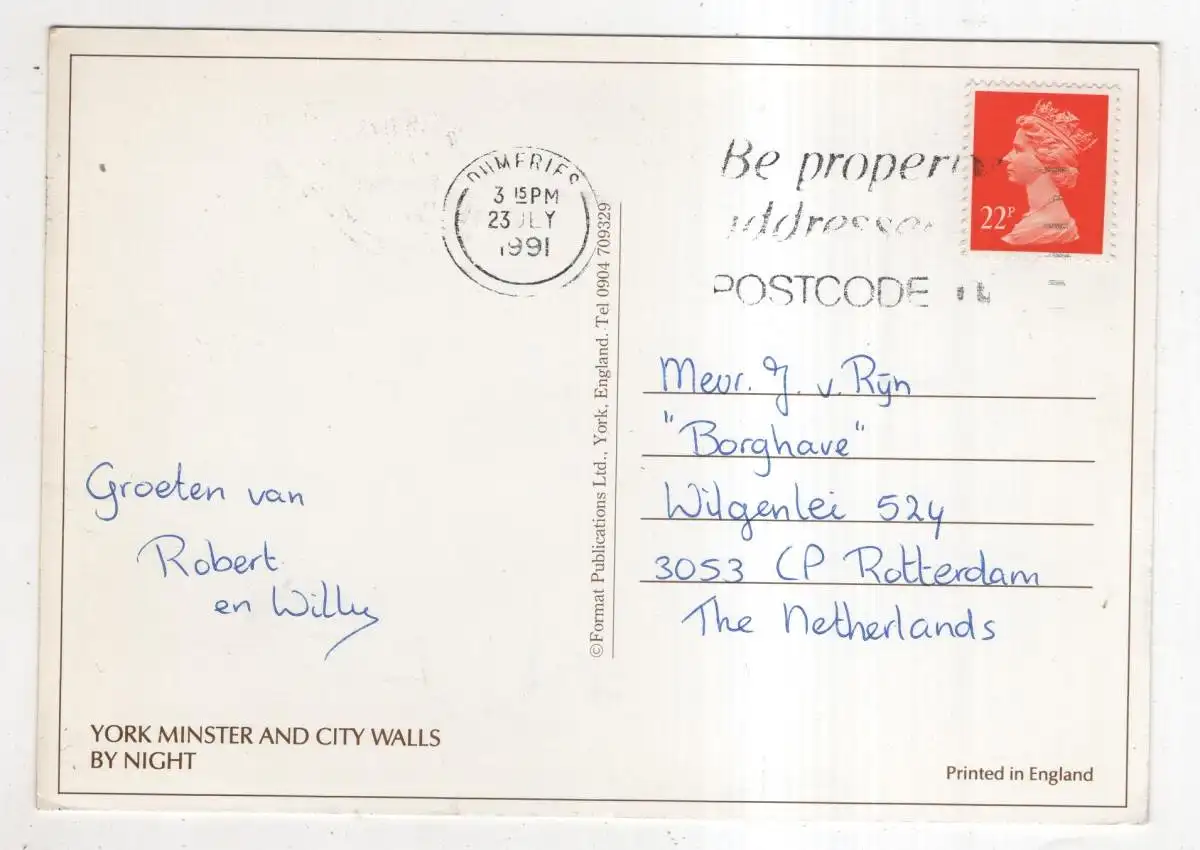 DUMFRIES
3 15 PM
23 JLY
1991
Be properly
addressed
POSTCODE IT
22P
©Format Publications Ltd., York, England. Tel 0904 709329
Groeten van
Robert
en Willy
Mevr. J. v. Rijn
"Borghave"
Wilgenlei 524
3053 CP Rotterdam
The Netherlands
YORK MINSTER AND CITY WALLS
BY NIGHT
Printed in England